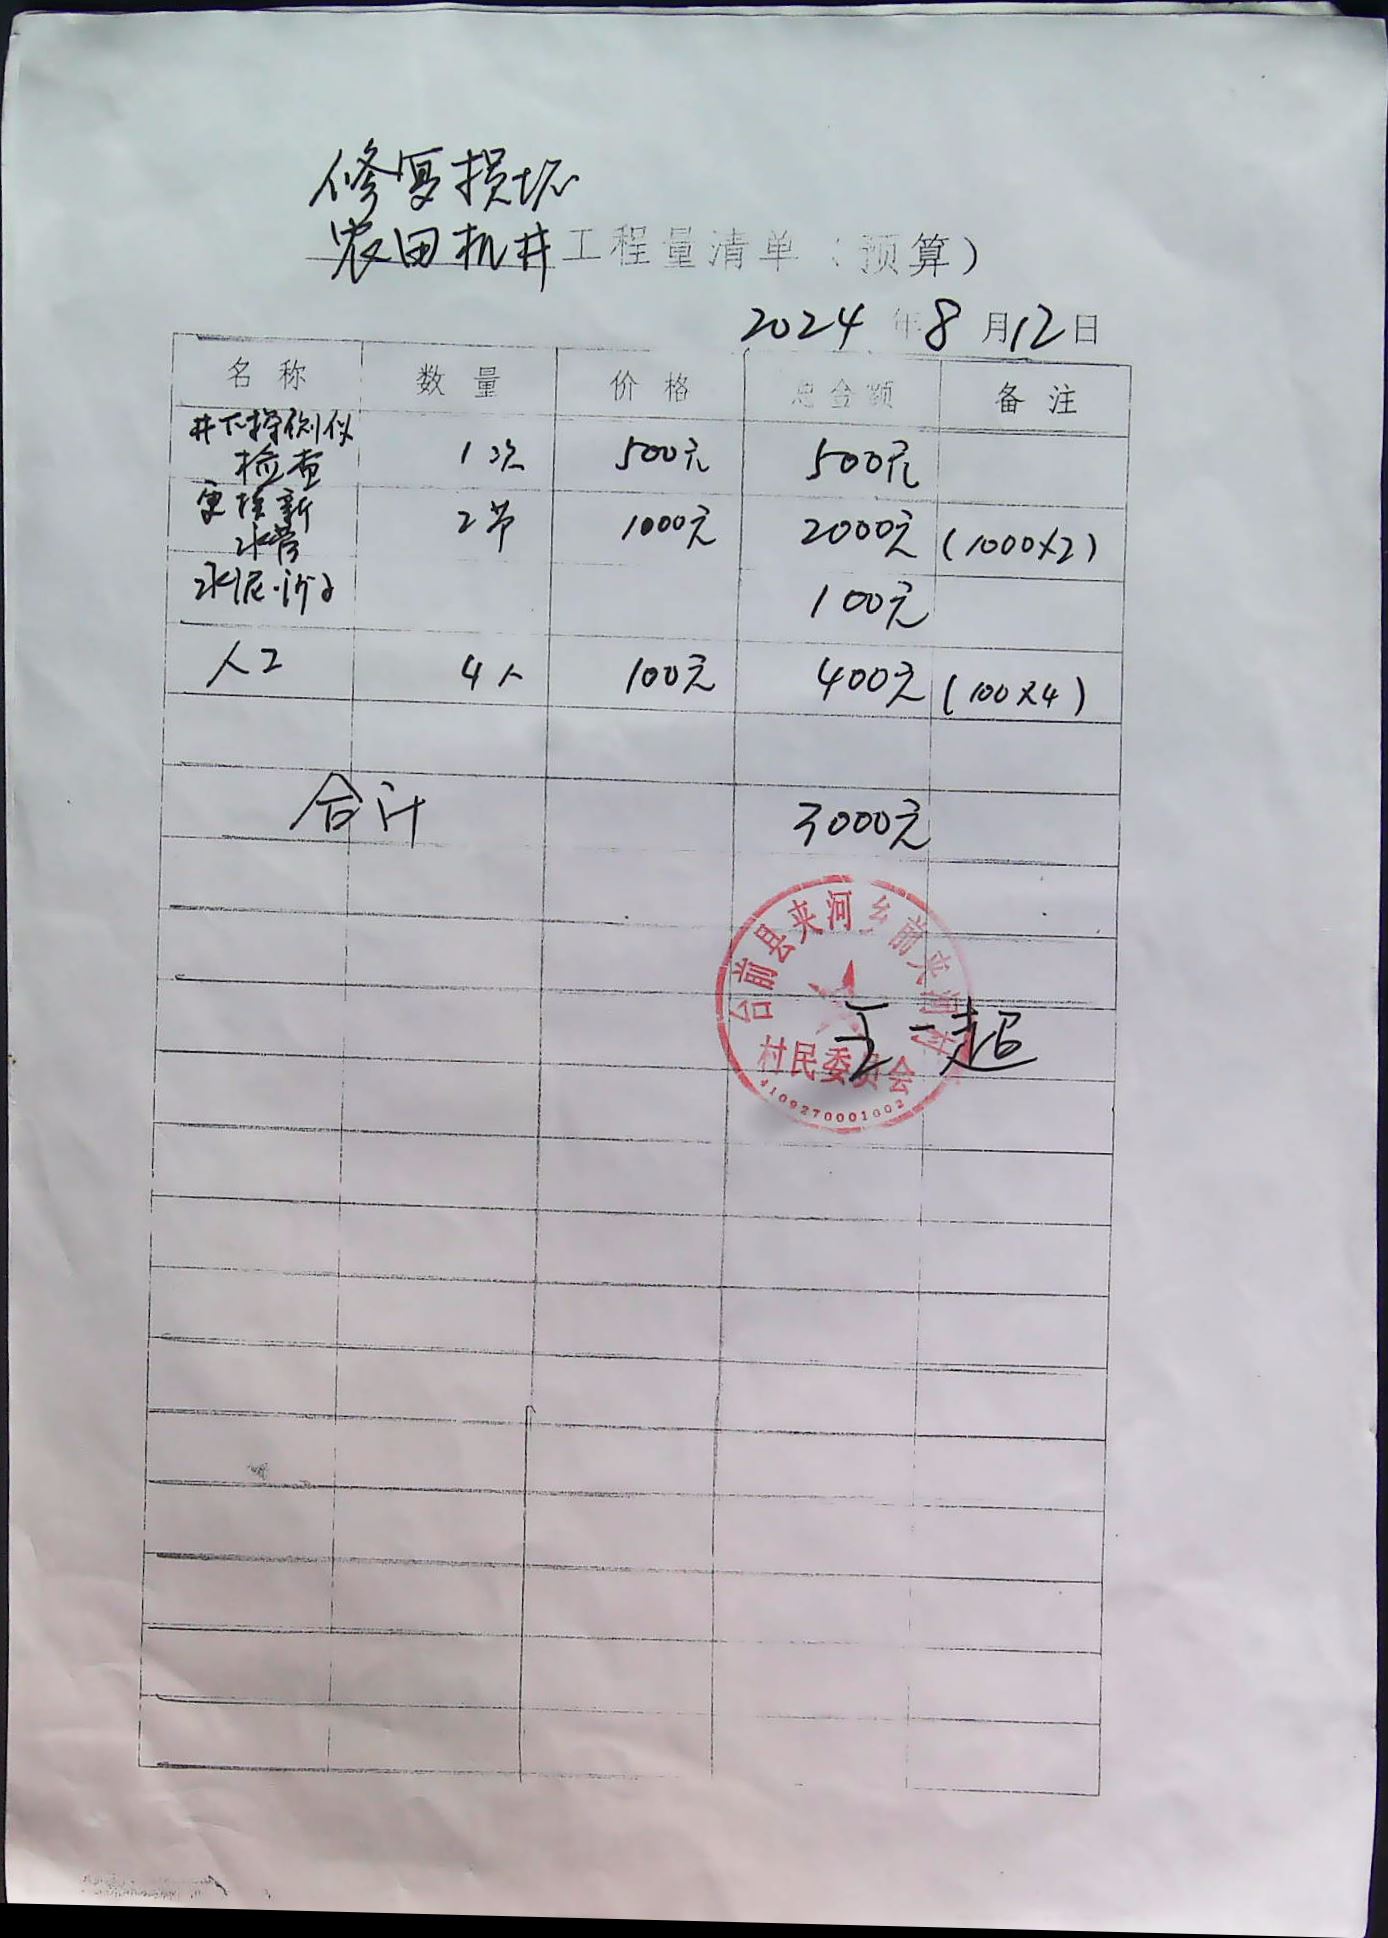 修复损坏
农田机井工程量清单（预算）
2024年8月12日
名称 数量 价格 总金额 备注
井下探测仪
检查 1次 500元 500元
更换新
水管 2节 1000元 2000元 (1000×2)
水泥·沙子 100元
人工 4人 100元 400元 (100×4)
合计 3000元
台前县夹河乡前夹河村
村民委员会
4109270001002
王一超